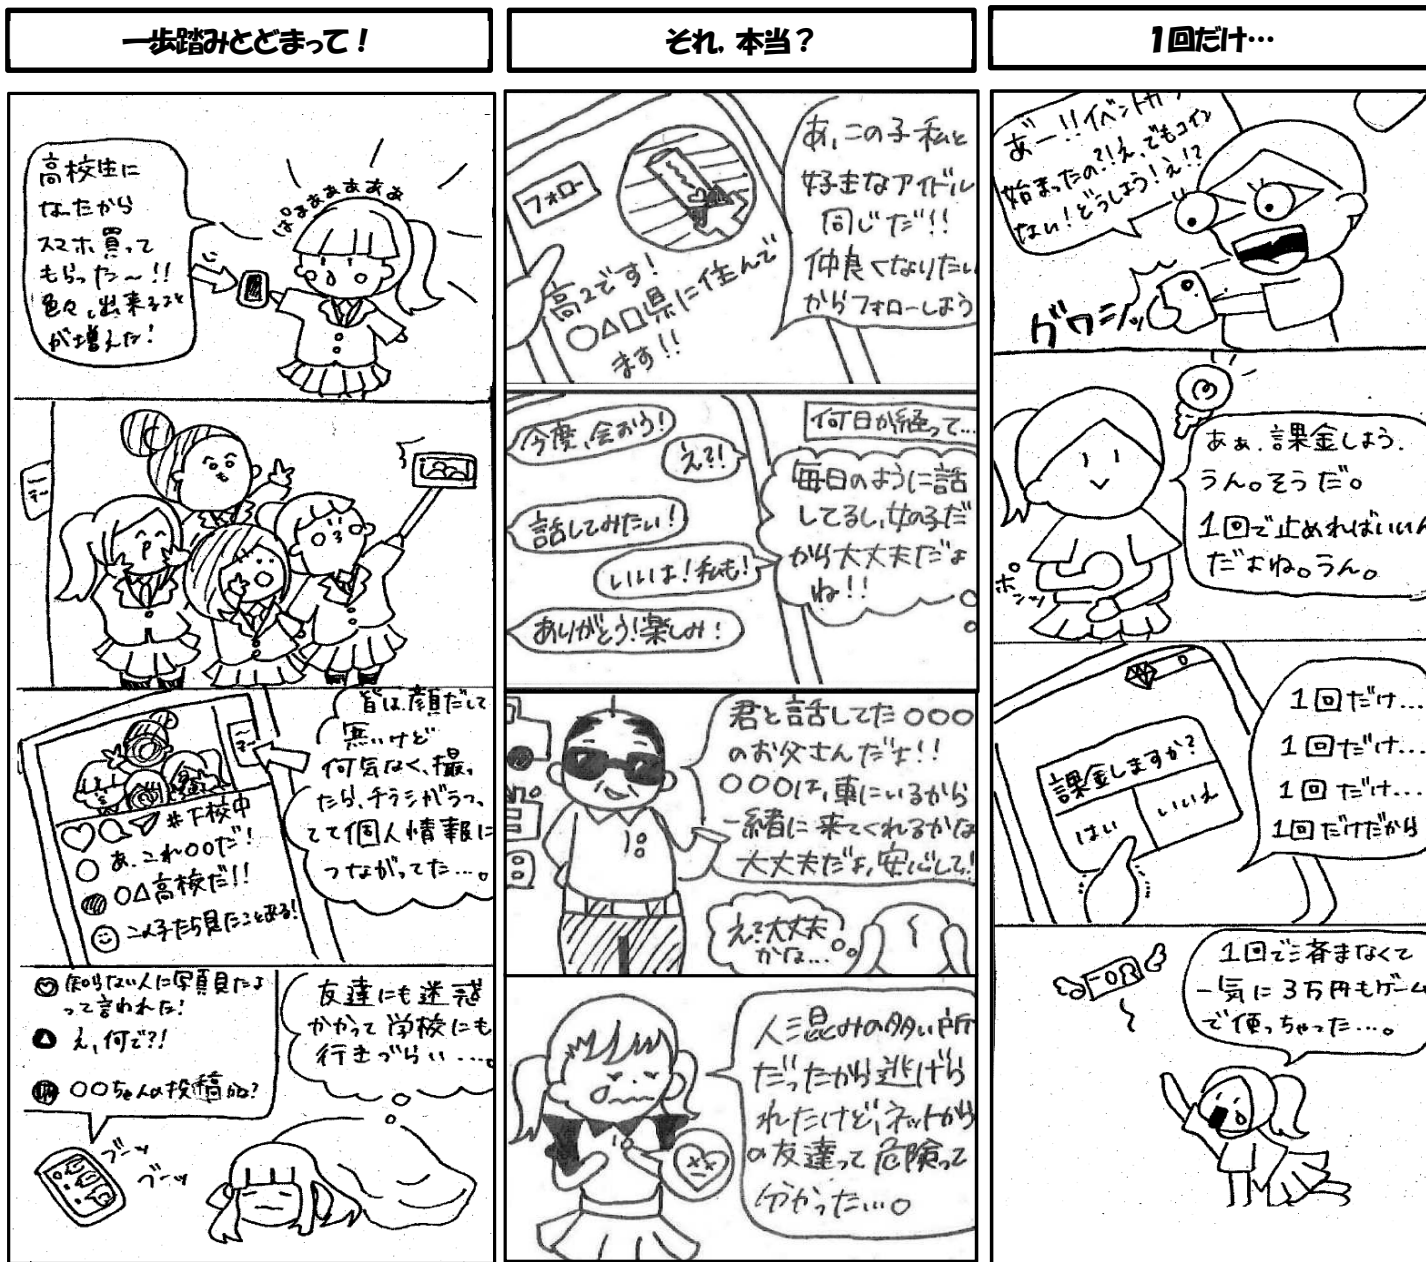 一歩踏みとどまって！
高校生に
なったから
スマホ買って
もらった～!!
色々、出来ること
が増えた!
ぱぁぁぁぁぁ
皆は顔だして
無いけど
何気なく、撮っ
たら、チラシがうつっ
てて個人情報に
つながってた…。
#下校中
あ、これ〇〇だ!
〇△高校だ!!
この子たち見たことある!
知らない人に写真見たよ
って言われた!
え、何で?!
〇〇ちゃんの投稿かな?
友達にも迷惑
かかって学校にも
行きづらい…。
ブーッ
ブーッ
それ，本当？
あ、この子私と
好きなアイドル
同じだ!!
仲良くなりたい
からフォローしよう
フォロー
高2です!
〇△□県に住んで
ます!!
何日か経って…
今度、会おう!
え?!
話してみたい!
いいよ!私も!
ありがとう!楽しみ!
毎日のように話
してるし、女の子だ
から大丈夫だよ
ね!!
君と話してた〇〇〇
のお父さんだよ!!
〇〇〇は、車にいるから
一緒に来てくれるかな
大丈夫だよ,安心して!
え?大丈夫
かな…
人混みの多い所
だったから逃げら
れたけど、ネットから
の友達って危険って
分かった…。
1回だけ…
あ゛ー!!イベントガ
始まったの?!え、でもコイン
ない!どうしよう!え!?
グワシッ
あぁ、課金しよう.
うん。そうだ。
1回で止めればいいん
だよね。うん。
ポンッ
0
課金しますか?
はい
いいえ
1回だけ…
1回だけ…
1回だけ…
1回だけだから
1回で済まなくて
一気に3万円もゲーム
で使っちゃった…。